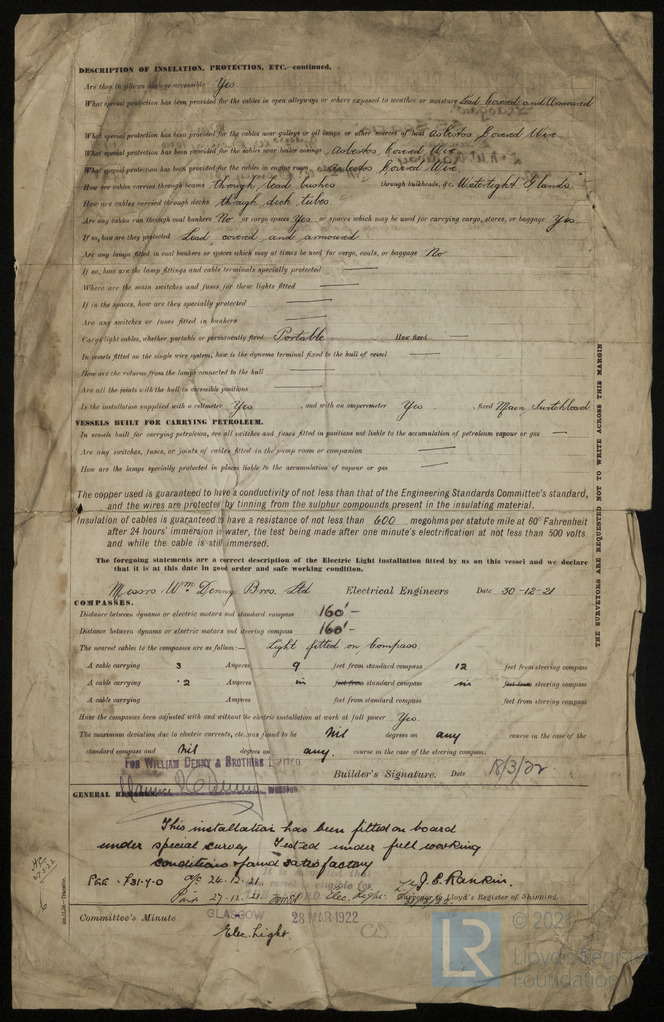 DESCRIPTION OF INSULATION, PROTECTION, ETC.—continued.
Are they in places always accessible Yes
What special protection has been provided for the cables in open alleyways or where exposed to weather or moisture Lead Covered and Armoured
What special protection has been provided for the cables near galleys or oil lamps or other sources of heat Asbestos Covered Wire
What special protection has been provided for the cables near boiler casings Asbestos Covered Wire
What special protection has been provided for the cables in engine room Asbestos Covered Wire
How are cables carried through beams through lead bushes through bulkheads, &c. Watertight Glands
How are cables carried through decks through deck tubes
Are any cables run through coal bunkers No or cargo spaces Yes or spaces which may be used for carrying cargo, stores, or baggage Yes
If so, how are they protected Lead covered and armoured
Are any lamps fitted in coal bunkers or spaces which may at times be used for cargo, coals, or baggage No
If so, how are the lamp fittings and cable terminals specially protected —
Where are the main switches and fuses for these lights fitted —
If in the spaces, how are they specially protected —
Are any switches or fuses fitted in bunkers —
Cargo light cables, whether portable or permanently fixed Portable How fixed —
In vessels fitted on the single wire system, how is the dynamo terminal fixed to the hull of vessel —
How are the returns from the lamps connected to the hull —
Are all the joints with the hull in accessible positions —
Is the installation supplied with a voltmeter Yes , and with an amperemeter Yes , fixed Main Switchboard
VESSELS BUILT FOR CARRYING PETROLEUM.
In vessels built for carrying petroleum, are all switches and fuses fitted in positions not liable to the accumulation of petroleum vapour or gas —
Are any switches, fuses, or joints of cables fitted in the pump room or companion —
How are the lamps specially protected in places liable to the accumulation of vapour or gas —
The copper used is guaranteed to have a conductivity of not less than that of the Engineering Standards Committee's standard,
and the wires are protected by tinning from the sulphur compounds present in the insulating material.
Insulation of cables is guaranteed to have a resistance of not less than 600 megohms per statute mile at 60° Fahrenheit
after 24 hours' immersion in water, the test being made after one minute's electrification at not less than 500 volts
and while the cable is still immersed.
The foregoing statements are a correct description of the Electric Light installation fitted by us on this vessel and we declare
that it is at this date in good order and safe working condition.
Messrs. Wm Denny Bros. Ltd Electrical Engineers Date 30-12-21
COMPASSES.
Distance between dynamo or electric motors and standard compass 160'-
Distance between dynamo or electric motors and steering compass 160'-
The nearest cables to the compasses are as follow:— Light fitted on Compass.
A cable carrying 3 Amperes 9 feet from standard compass 12 feet from steering compass
A cable carrying ·2 Amperes in feet from standard compass in feet from steering compass
A cable carrying Amperes feet from standard compass feet from steering compass
Have the compasses been adjusted with and without the electric installation at work at full power Yes.
The maximum deviation due to electric currents, etc. was found to be Nil degrees on any course in the case of the
standard compass and Nil degrees on any. course in the case of the steering compass.
FOR WILLIAM DENNY & BROTHERS LIMITED
Builder's Signature. Date 18/3/22
GENERAL REMARKS
This installation has been fitted on board
under special survey Tested under full working
conditions & found satisfactory
24.12.21
27.12.21 Elec. Light. J. E. Rankin.
Surveyor to Lloyd's Register of Shipping.
Committee's Minute GLASGOW 28 MAR 1922
Elec. Light.
THE SURVEYORS ARE REQUESTED NOT TO WRITE ACROSS THIS MARGIN
LR
© 2021
Lloyd's Register
Foundation